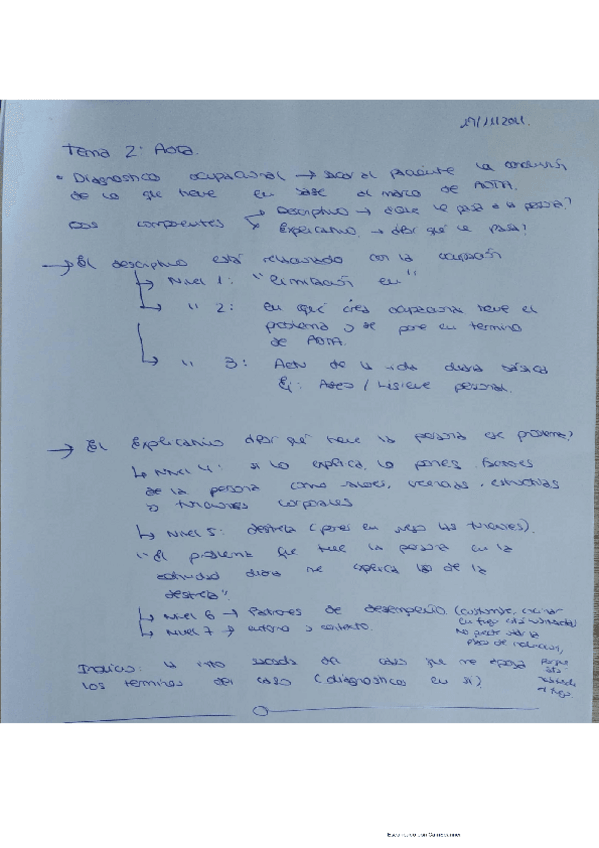 Tema 2: AOTA.
• Diagnostico ocupacional → sacar al paciente la conclusión
de lo que tiene en base al marco de AOTA.
Dos componentes → Descriptivo → ¿Qué le pasa a la persona?
→ Explicativo → ¿Por qué le pasa?
→ El descriptivo está relacionado con la ocupación
↳ Nivel 1: "limitación en"
↳ " 2: en qué área ocupacional tiene el
problema y se pone en termino
de AOTA.
↳ " 3: Actv de la vida diaria básica
Ej: Aseo / Higiene personal.
→ El Explicativo ¿Por qué tiene la persona ese problema?
↳ Nivel 4: si lo explica, lo pones. factores
de la persona como valores, creencias, estructuras
y funciones corporales
↳ Nivel 5: destreza (pones en juego las funciones).
"El problema que tiene la persona en la
actividad diaria me explica las de la
destreza"
↳ Nivel 6 → Patrones de desempeño (costumbre, cocinar
en fuego
↳ Nivel 7 → entorno y contexto.
No puede usar la
placa de
porque
Indicios: la info sacada del caso que me apoya
los terminos del caso (diagnostico en sí)
el fuego.